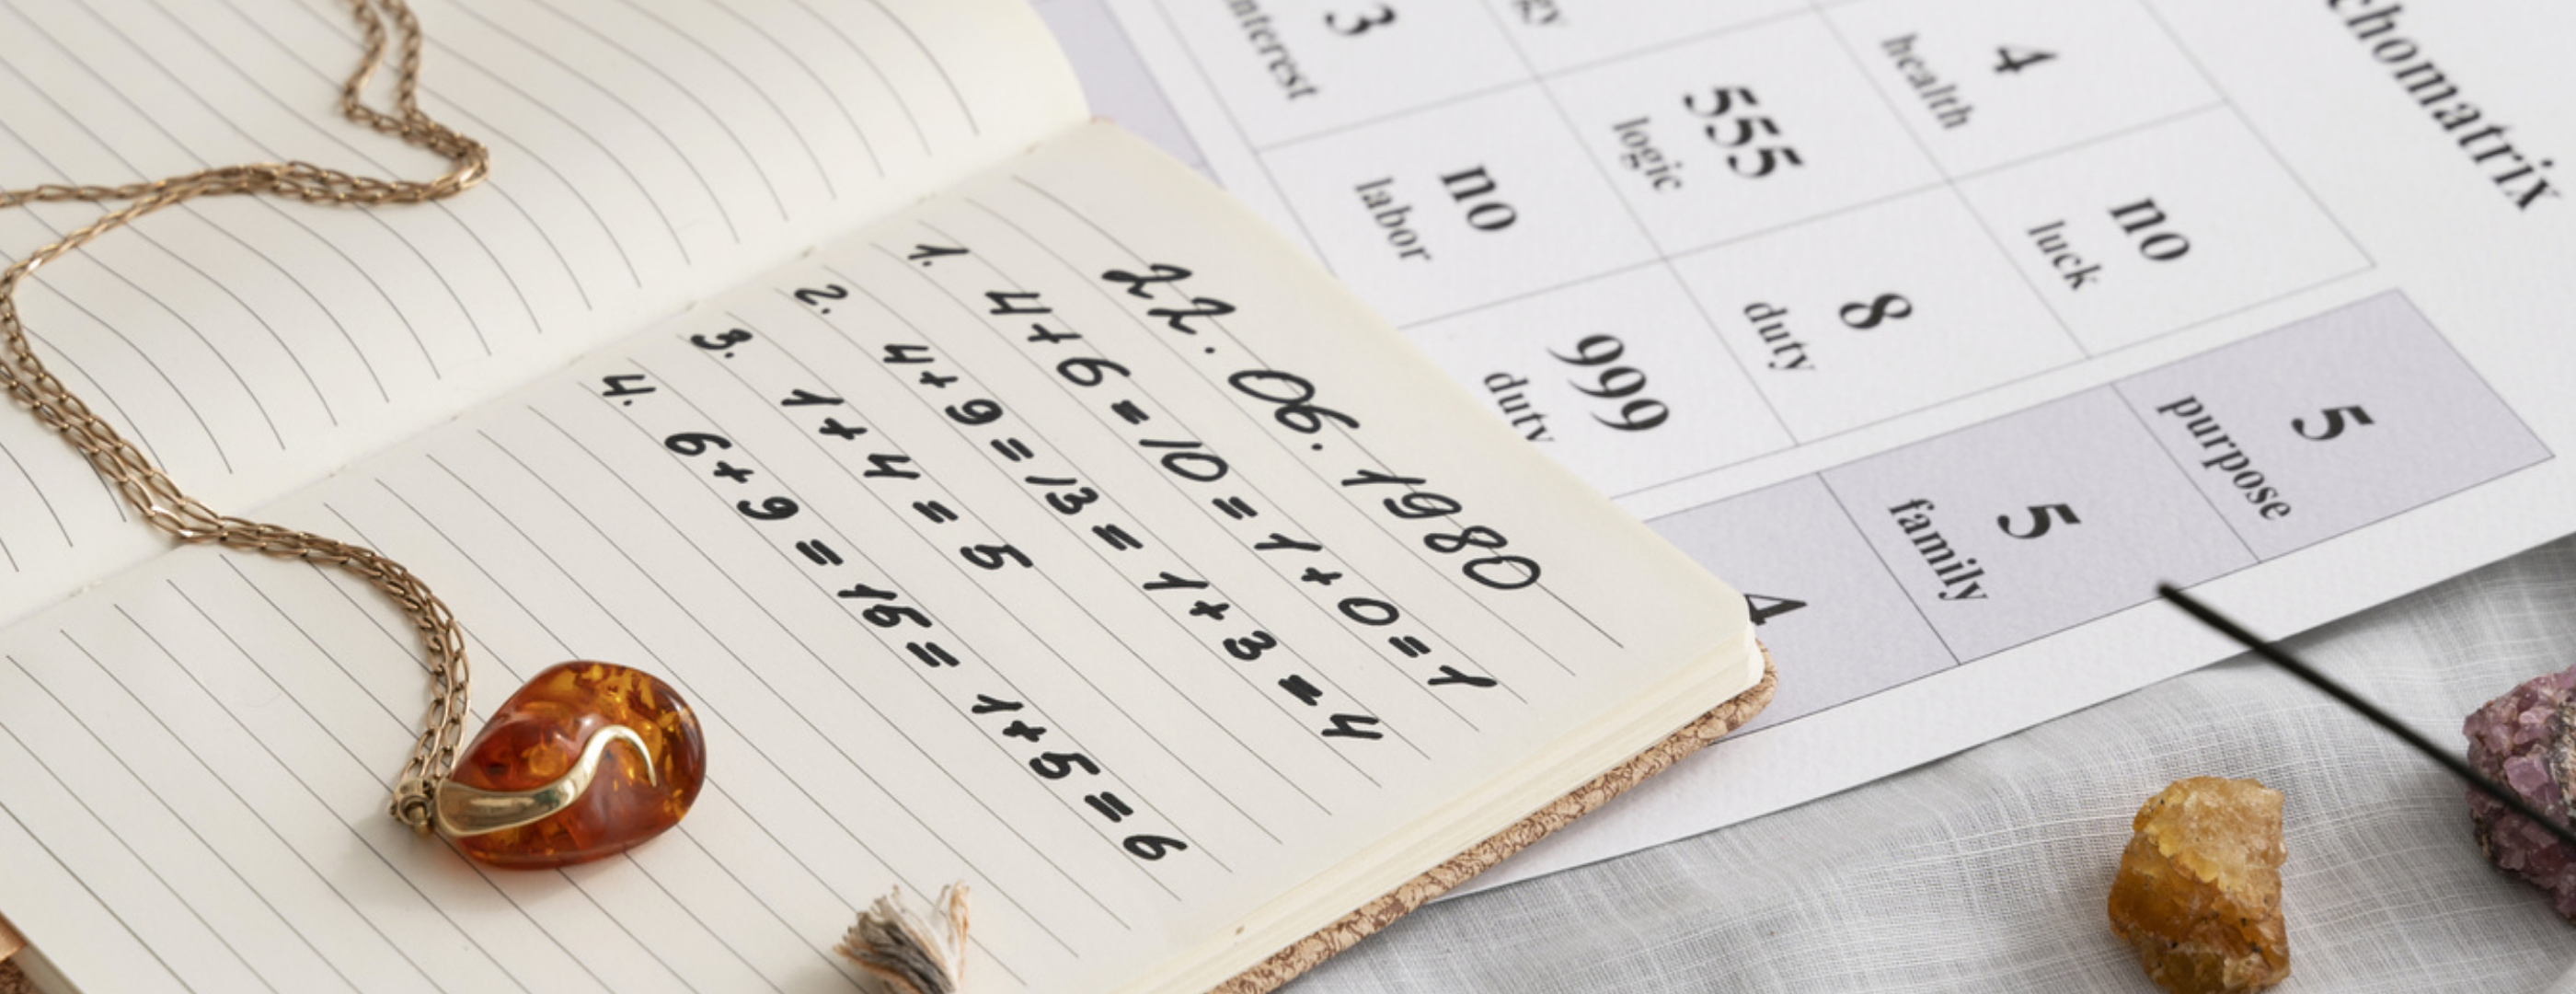 22.06.1980
1. 4+6=10=1+0=1
2. 4+9=13=1+3=4
3. 1+4=5
4. 6+9=15=1+5=6
chomatrix
3
interest
gy
4
health
no
labor
555
logic
no
luck
999
duty
8
duty
4
5
family
5
purpose